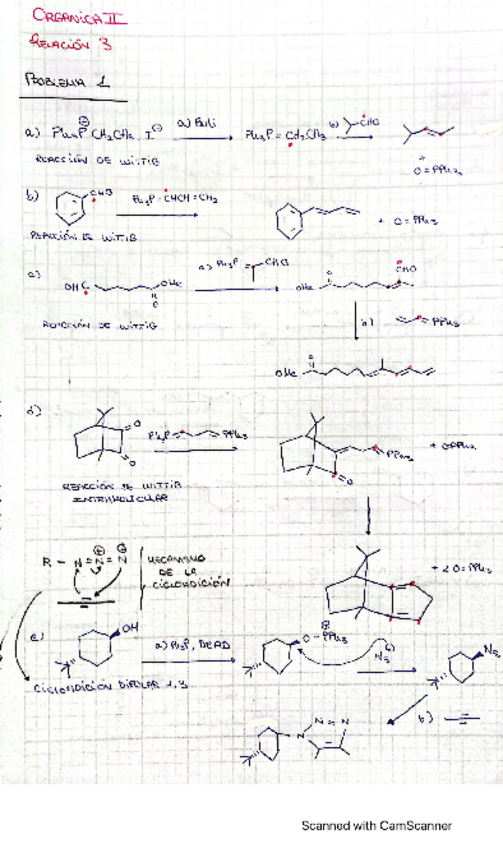 ORGANICA II
RELACIÓN 3
PROBLEMA 1
a) Ph₃P CH₂CH₃ I⊖ a) BuLi Ph₃P = CHCH₃ b) CHO
REACCIÓN DE WITTIG
O=PPh₃
b) CHO Ph₃P - CHCH=CH₂ + O=PPh₃
REACCIÓN DE WITTIG
c) OHC OMe O a) Ph₃P CHO OMe O CHO
REACCIÓN DE WITTIG
b) PPh₃
OMe O
d) O O Ph₃P PPh₃ PPh₃ O + OPPh₃
REACCIÓN DE WITTIG
INTRAMOLECULAR
R - N = N = N
MECANISMO
DE LA
CICLOADICIÓN
+ 2 O=PPh₃
e) OH a) Ph₃P, DEAD O-PPh₃ N₃ N₃
CICLOADICIÓN DIPOLAR 1,3
b)
N N = N
Scanned with CamScanner